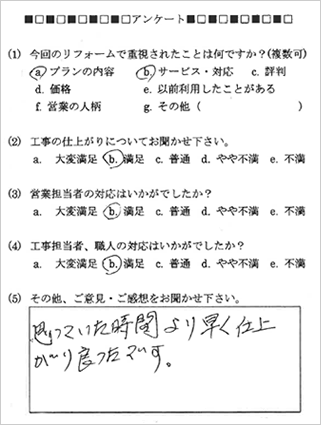 ■□■□■□■□アンケート■□■□■□■□
(1) 今回のリフォームで重視されたことは何ですか?(複数可)
a. プランの内容 b. サービス・対応 c. 評判
d. 価格 e. 以前利用したことがある
f. 営業の人柄 g. その他 ( )
(2) 工事の仕上がりについてお聞かせ下さい。
a. 大変満足 b. 満足 c. 普通 d. やや不満 e. 不満
(3) 営業担当者の対応はいかがでしたか?
a. 大変満足 b. 満足 c. 普通 d. やや不満 e. 不満
(4) 工事担当者、職人の対応はいかがでしたか?
a. 大変満足 b. 満足 c. 普通 d. やや不満 e. 不満
(5) その他、ご意見・ご感想をお聞かせ下さい。
思っていた時間より早く仕上
がり良ったです。